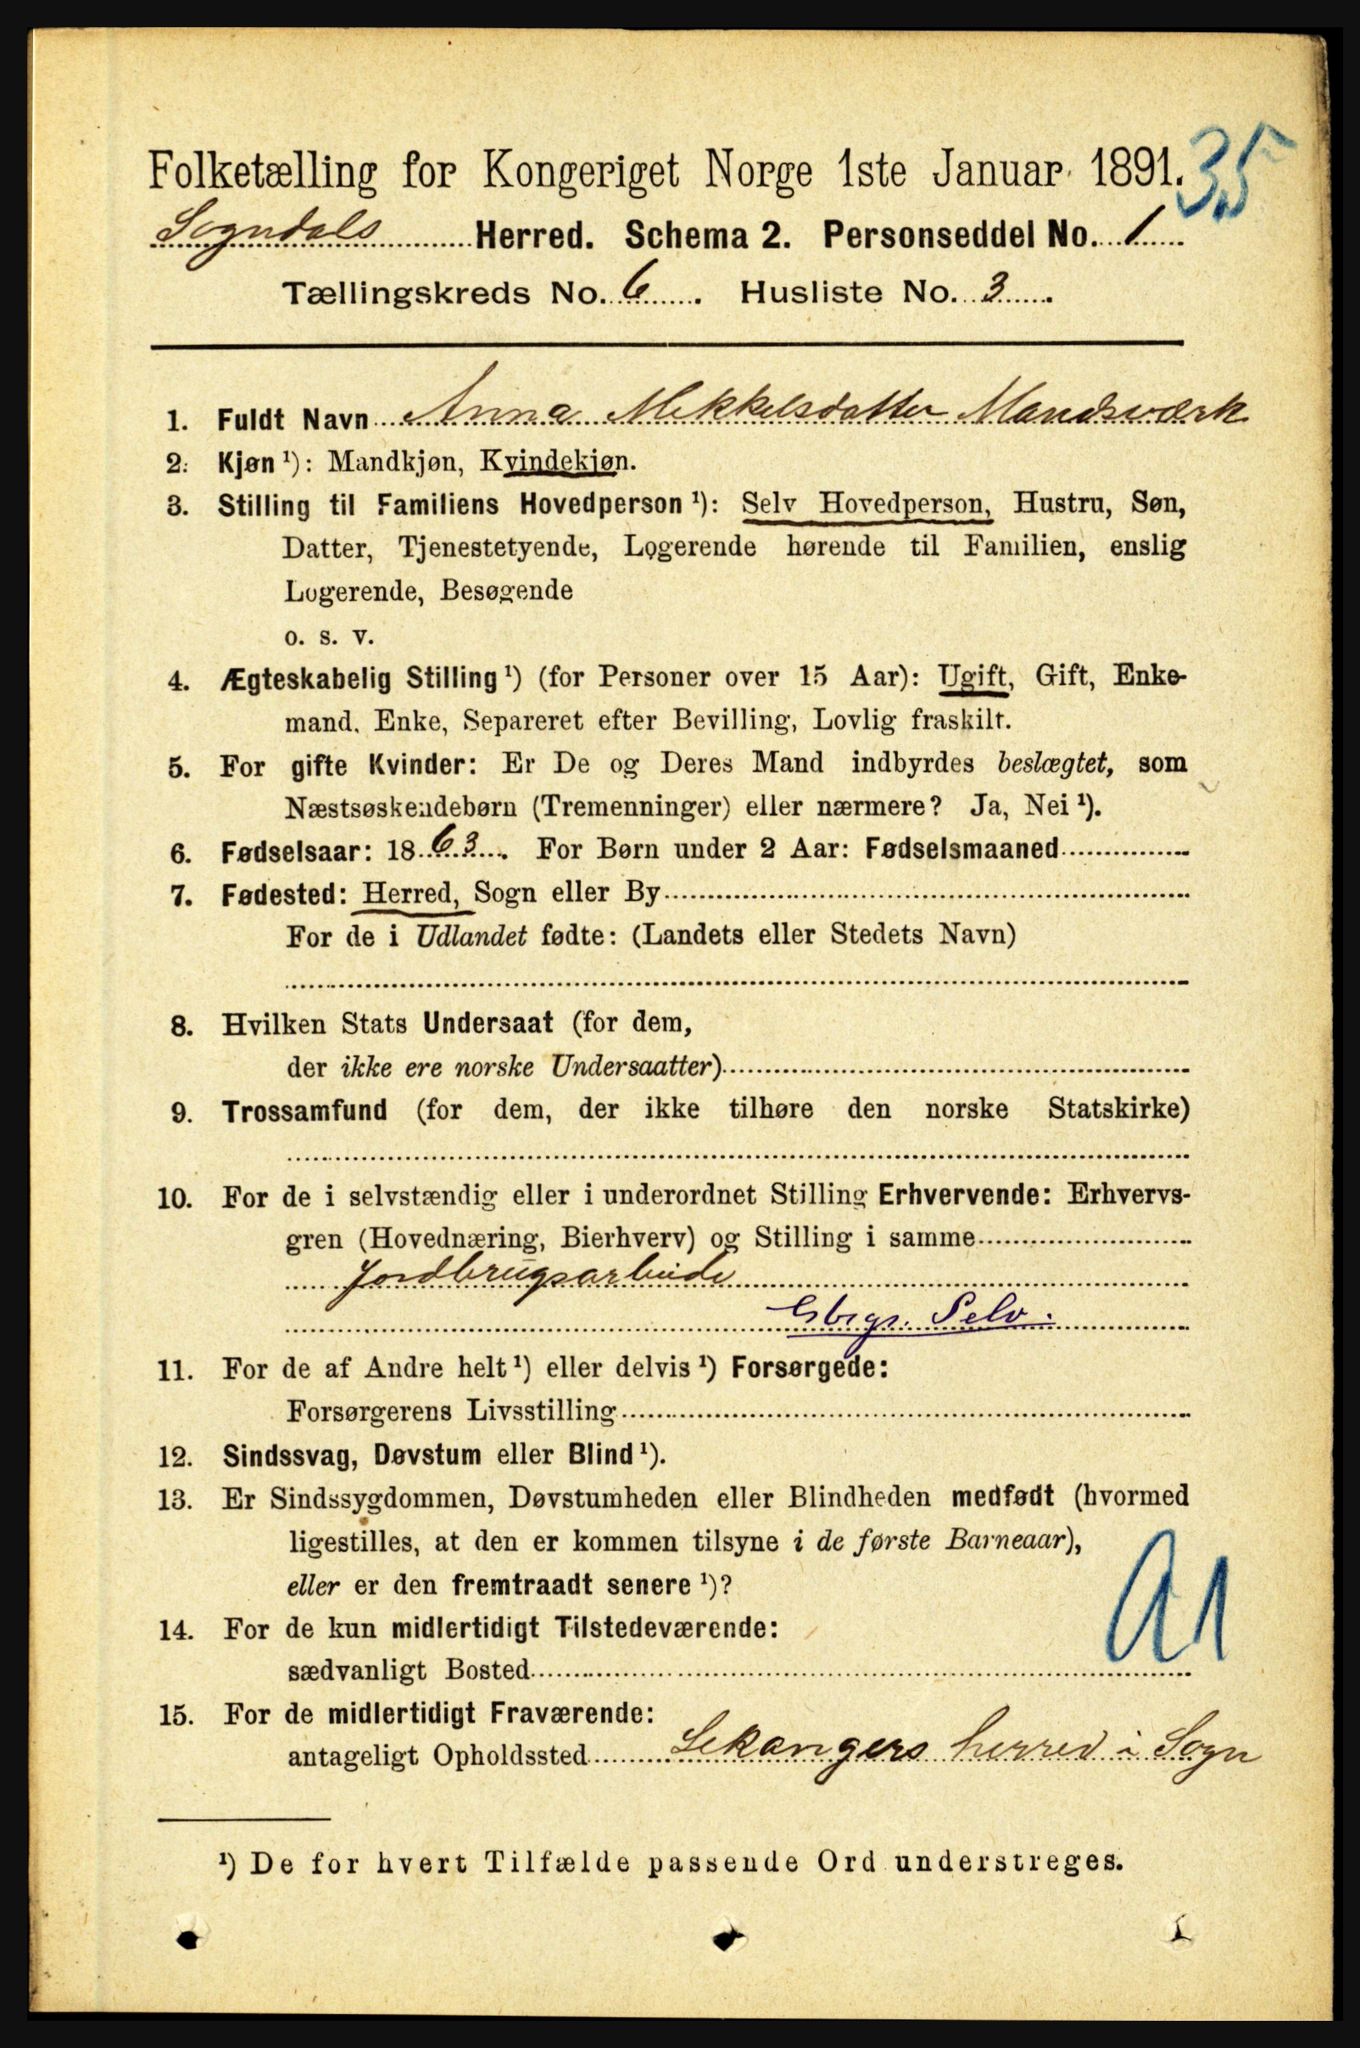 Folketælling for Kongeriget Norge 1ste Januar 1891. 35
Sogndals Herred. Schema 2. Personseddel No. 1
Tællingskreds No. 6. Husliste No. 3.
1. Fuldt Navn Anna Mikkelsdatter Mandsværk
2. Kjøn ¹): Mandkjøn, Kvindekjøn.
3. Stilling til Familiens Hovedperson ¹): Selv Hovedperson, Hustru, Søn,
Datter, Tjenestetyende, Logerende hørende til Familien, enslig
Logerende, Besøgende
o. s. v.
4. Ægteskabelig Stilling ¹) (for Personer over 15 Aar): Ugift, Gift, Enke-
mand, Enke, Separeret efter Bevilling, Lovlig fraskilt.
5. For gifte Kvinder: Er De og Deres Mand indbyrdes beslægtet, som
Næstsøskendebørn (Tremenninger) eller nærmere? Ja, Nei ¹).
6. Fødselsaar: 1863. For Børn under 2 Aar: Fødselsmaaned
7. Fødested: Herred, Sogn eller By
For de i Udlandet fødte: (Landets eller Stedets Navn)
8. Hvilken Stats Undersaat (for dem,
der ikke ere norske Undersaatter)
9. Trossamfund (for dem, der ikke tilhøre den norske Statskirke)
10. For de i selvstændig eller i underordnet Stilling Erhvervende: Erhvervs-
gren (Hovednæring, Bierhverv) og Stilling i samme
Jordbrugsarbeide
Gbrgr. Selv.
11. For de af Andre helt ¹) eller delvis ¹) Forsørgede:
Forsørgerens Livsstilling
12. Sindssvag, Døvstum eller Blind ¹).
13. Er Sindssygdommen, Døvstumheden eller Blindheden medfødt (hvormed
ligestilles, at den er kommen tilsyne i de første Barneaar),
eller er den fremtraadt senere ¹)?
A1
14. For de kun midlertidigt Tilstedeværende:
sædvanligt Bosted
15. For de midlertidigt Fraværende:
antageligt Opholdssted Lekangers herred i Sogn
¹) De for hvert Tilfælde passende Ord understreges.